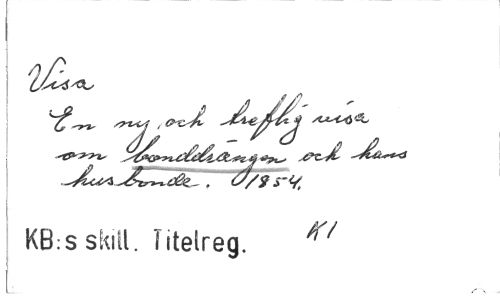 Visa
En ny och treflig visa
om bonddrängen och hans
husbonde. 1854.
KB:s skill. Titelreg. K1